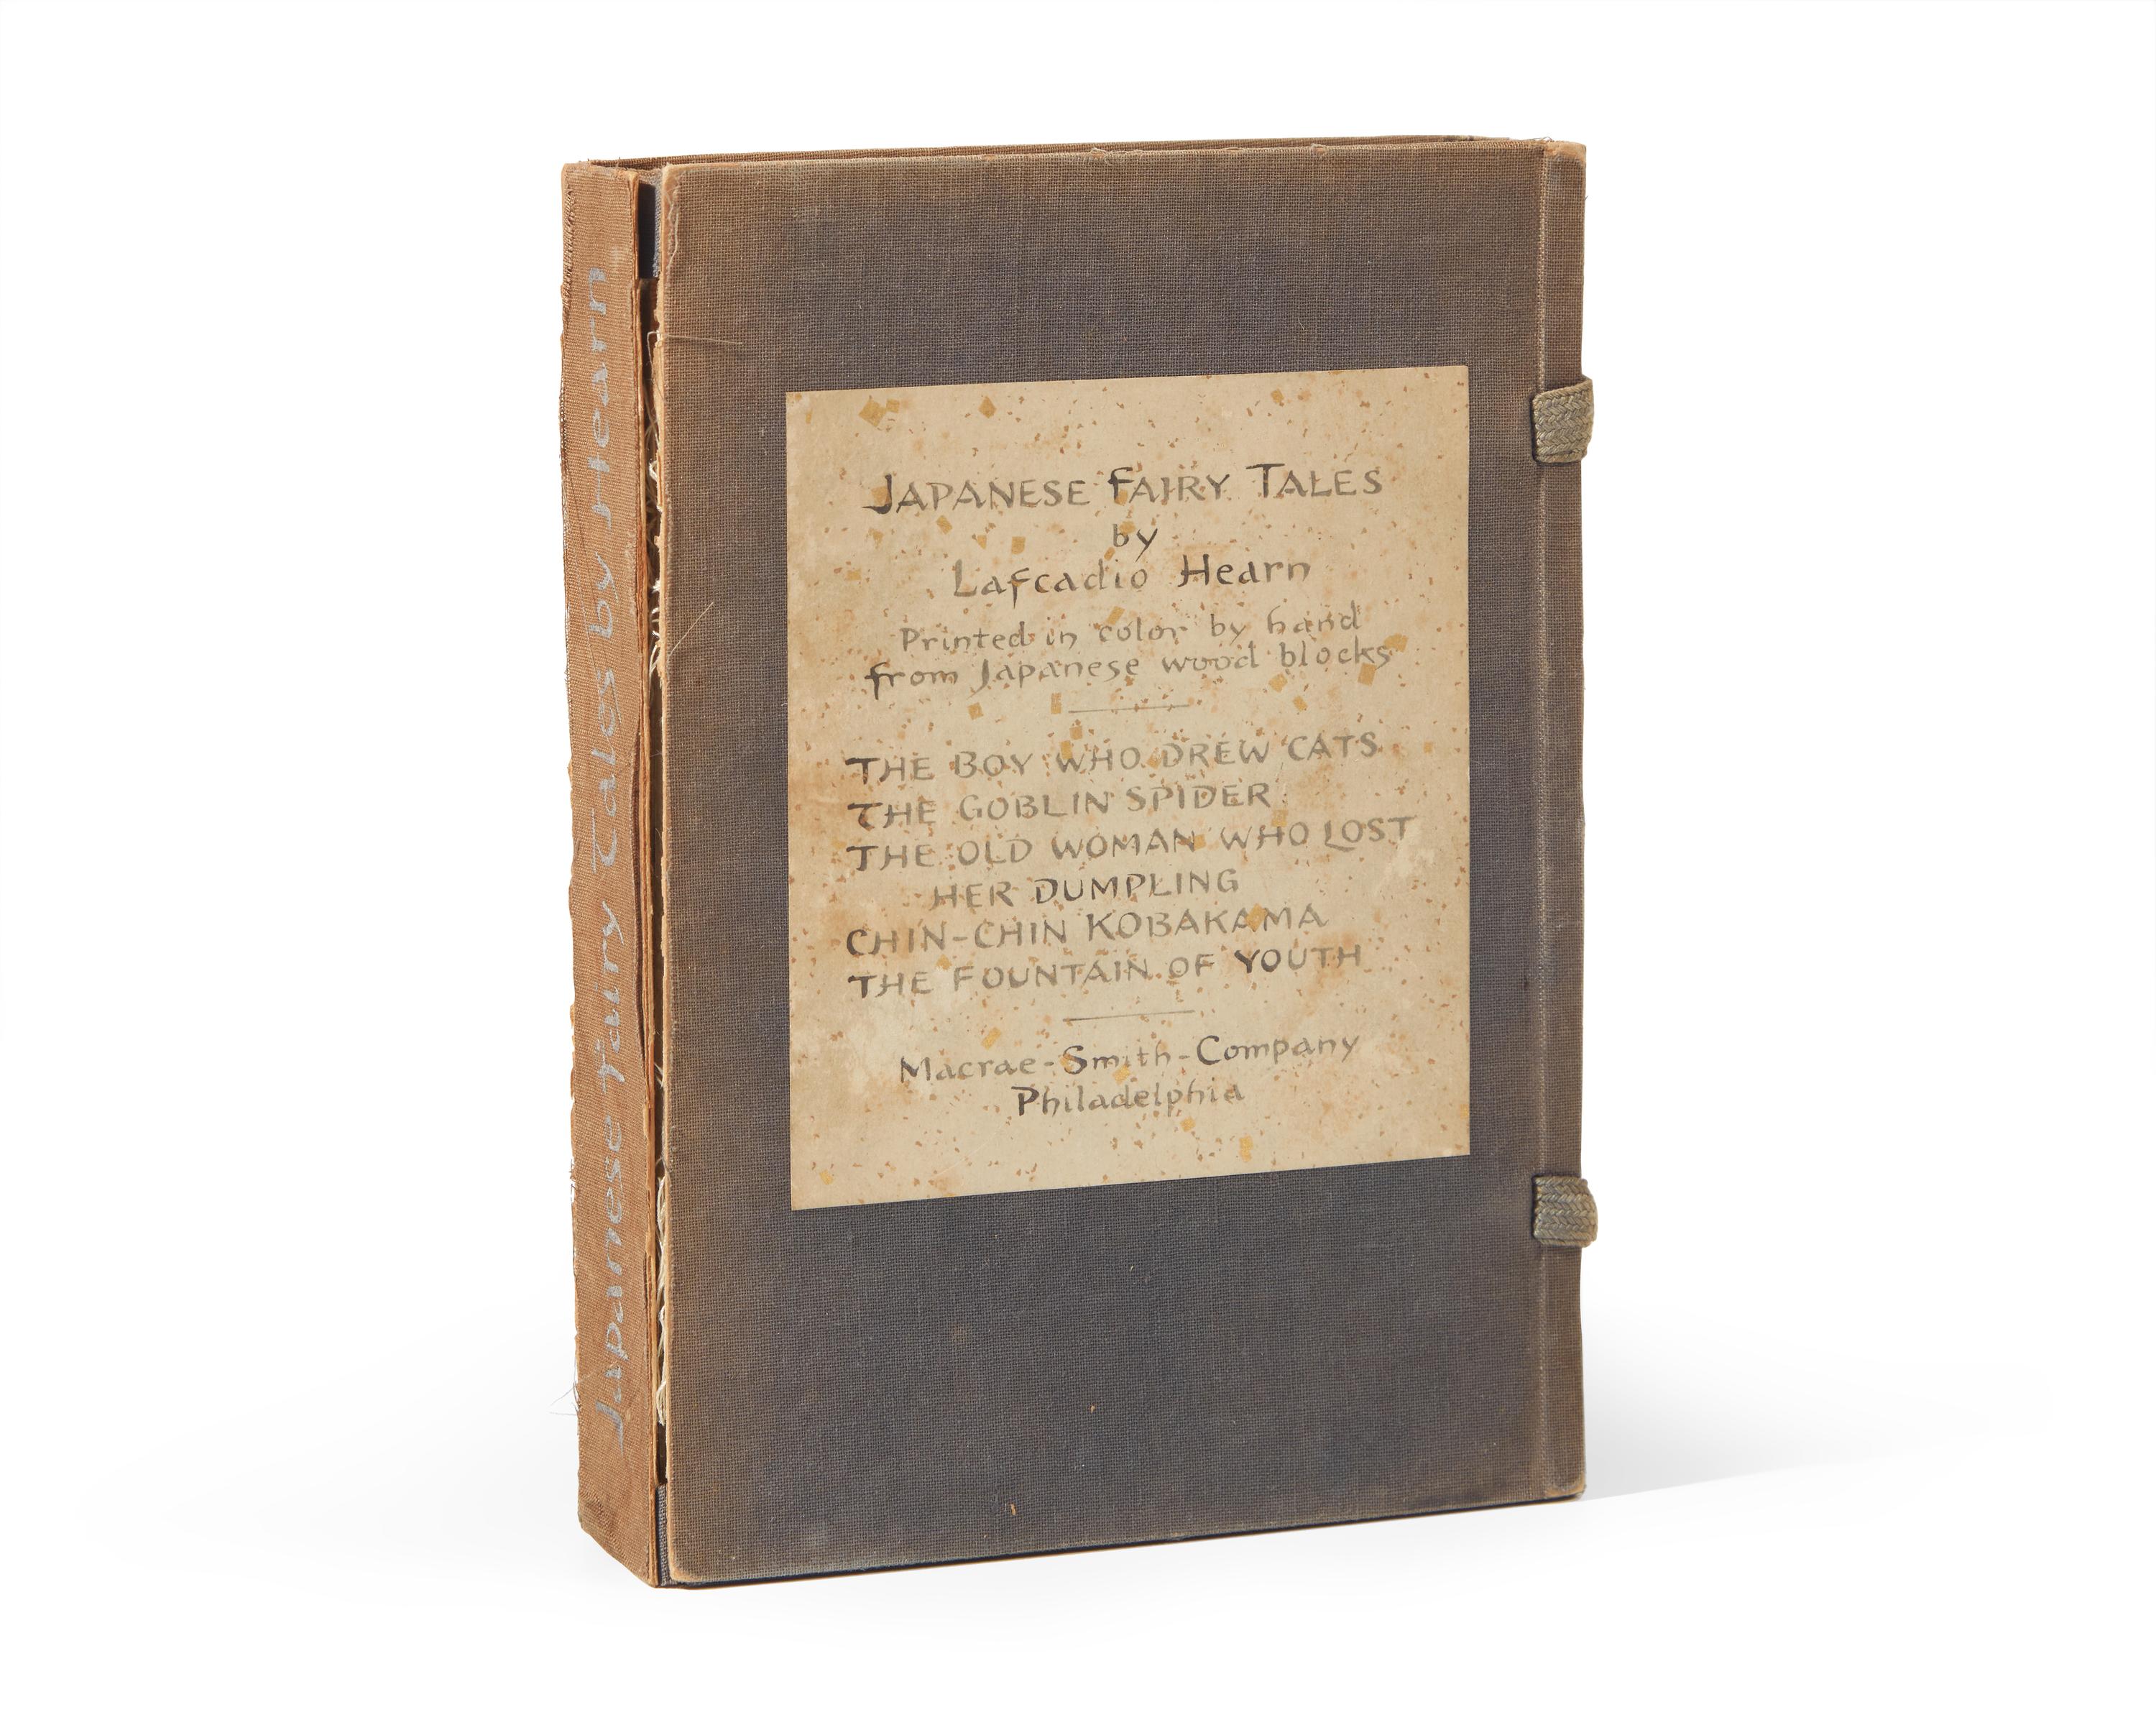 Japanese Fairy Tales by Hearn
JAPANESE FAIRY TALES
by
Lafcadio Hearn
Printed in color by hand
from Japanese wood blocks
THE BOY WHO DREW CATS
THE GOBLIN SPIDER
THE OLD WOMAN WHO LOST
HER DUMPLING
CHIN-CHIN KOBAKAMA
THE FOUNTAIN OF YOUTH
Macrae-Smith-Company
Philadelphia